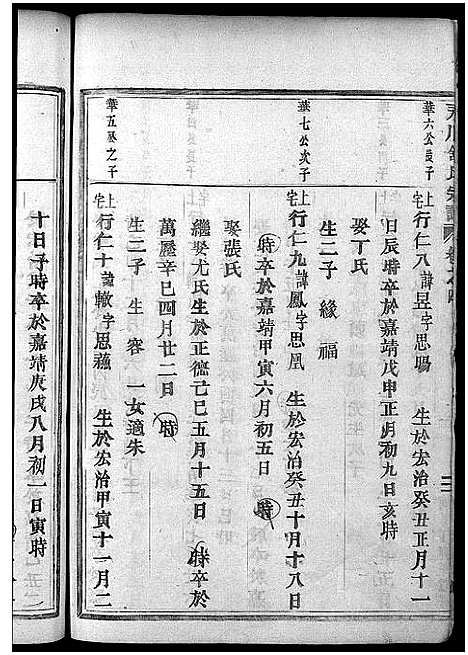 華六公長子
上宅行仁八諱昱字思暘　生於宏治癸丑正月十一
日辰時卒於嘉靖戊申正月初九日亥時
娶丁氏
生二子　緣　福
華七公次子
上宅行仁九諱鳳字思凰　生於宏治癸丑十月十八日
時卒於嘉靖甲寅六月初五日　時
娶張氏
繼娶尤氏生於正德己巳五月十五日　時卒於
萬曆辛巳四月廿二日　時
生二子　生　容　一女適朱
華五公之子
上宅行仁十諱轍字思蘓　生於宏治甲寅十一月二
十日子時卒於嘉靖庚戌八月初一日寅時